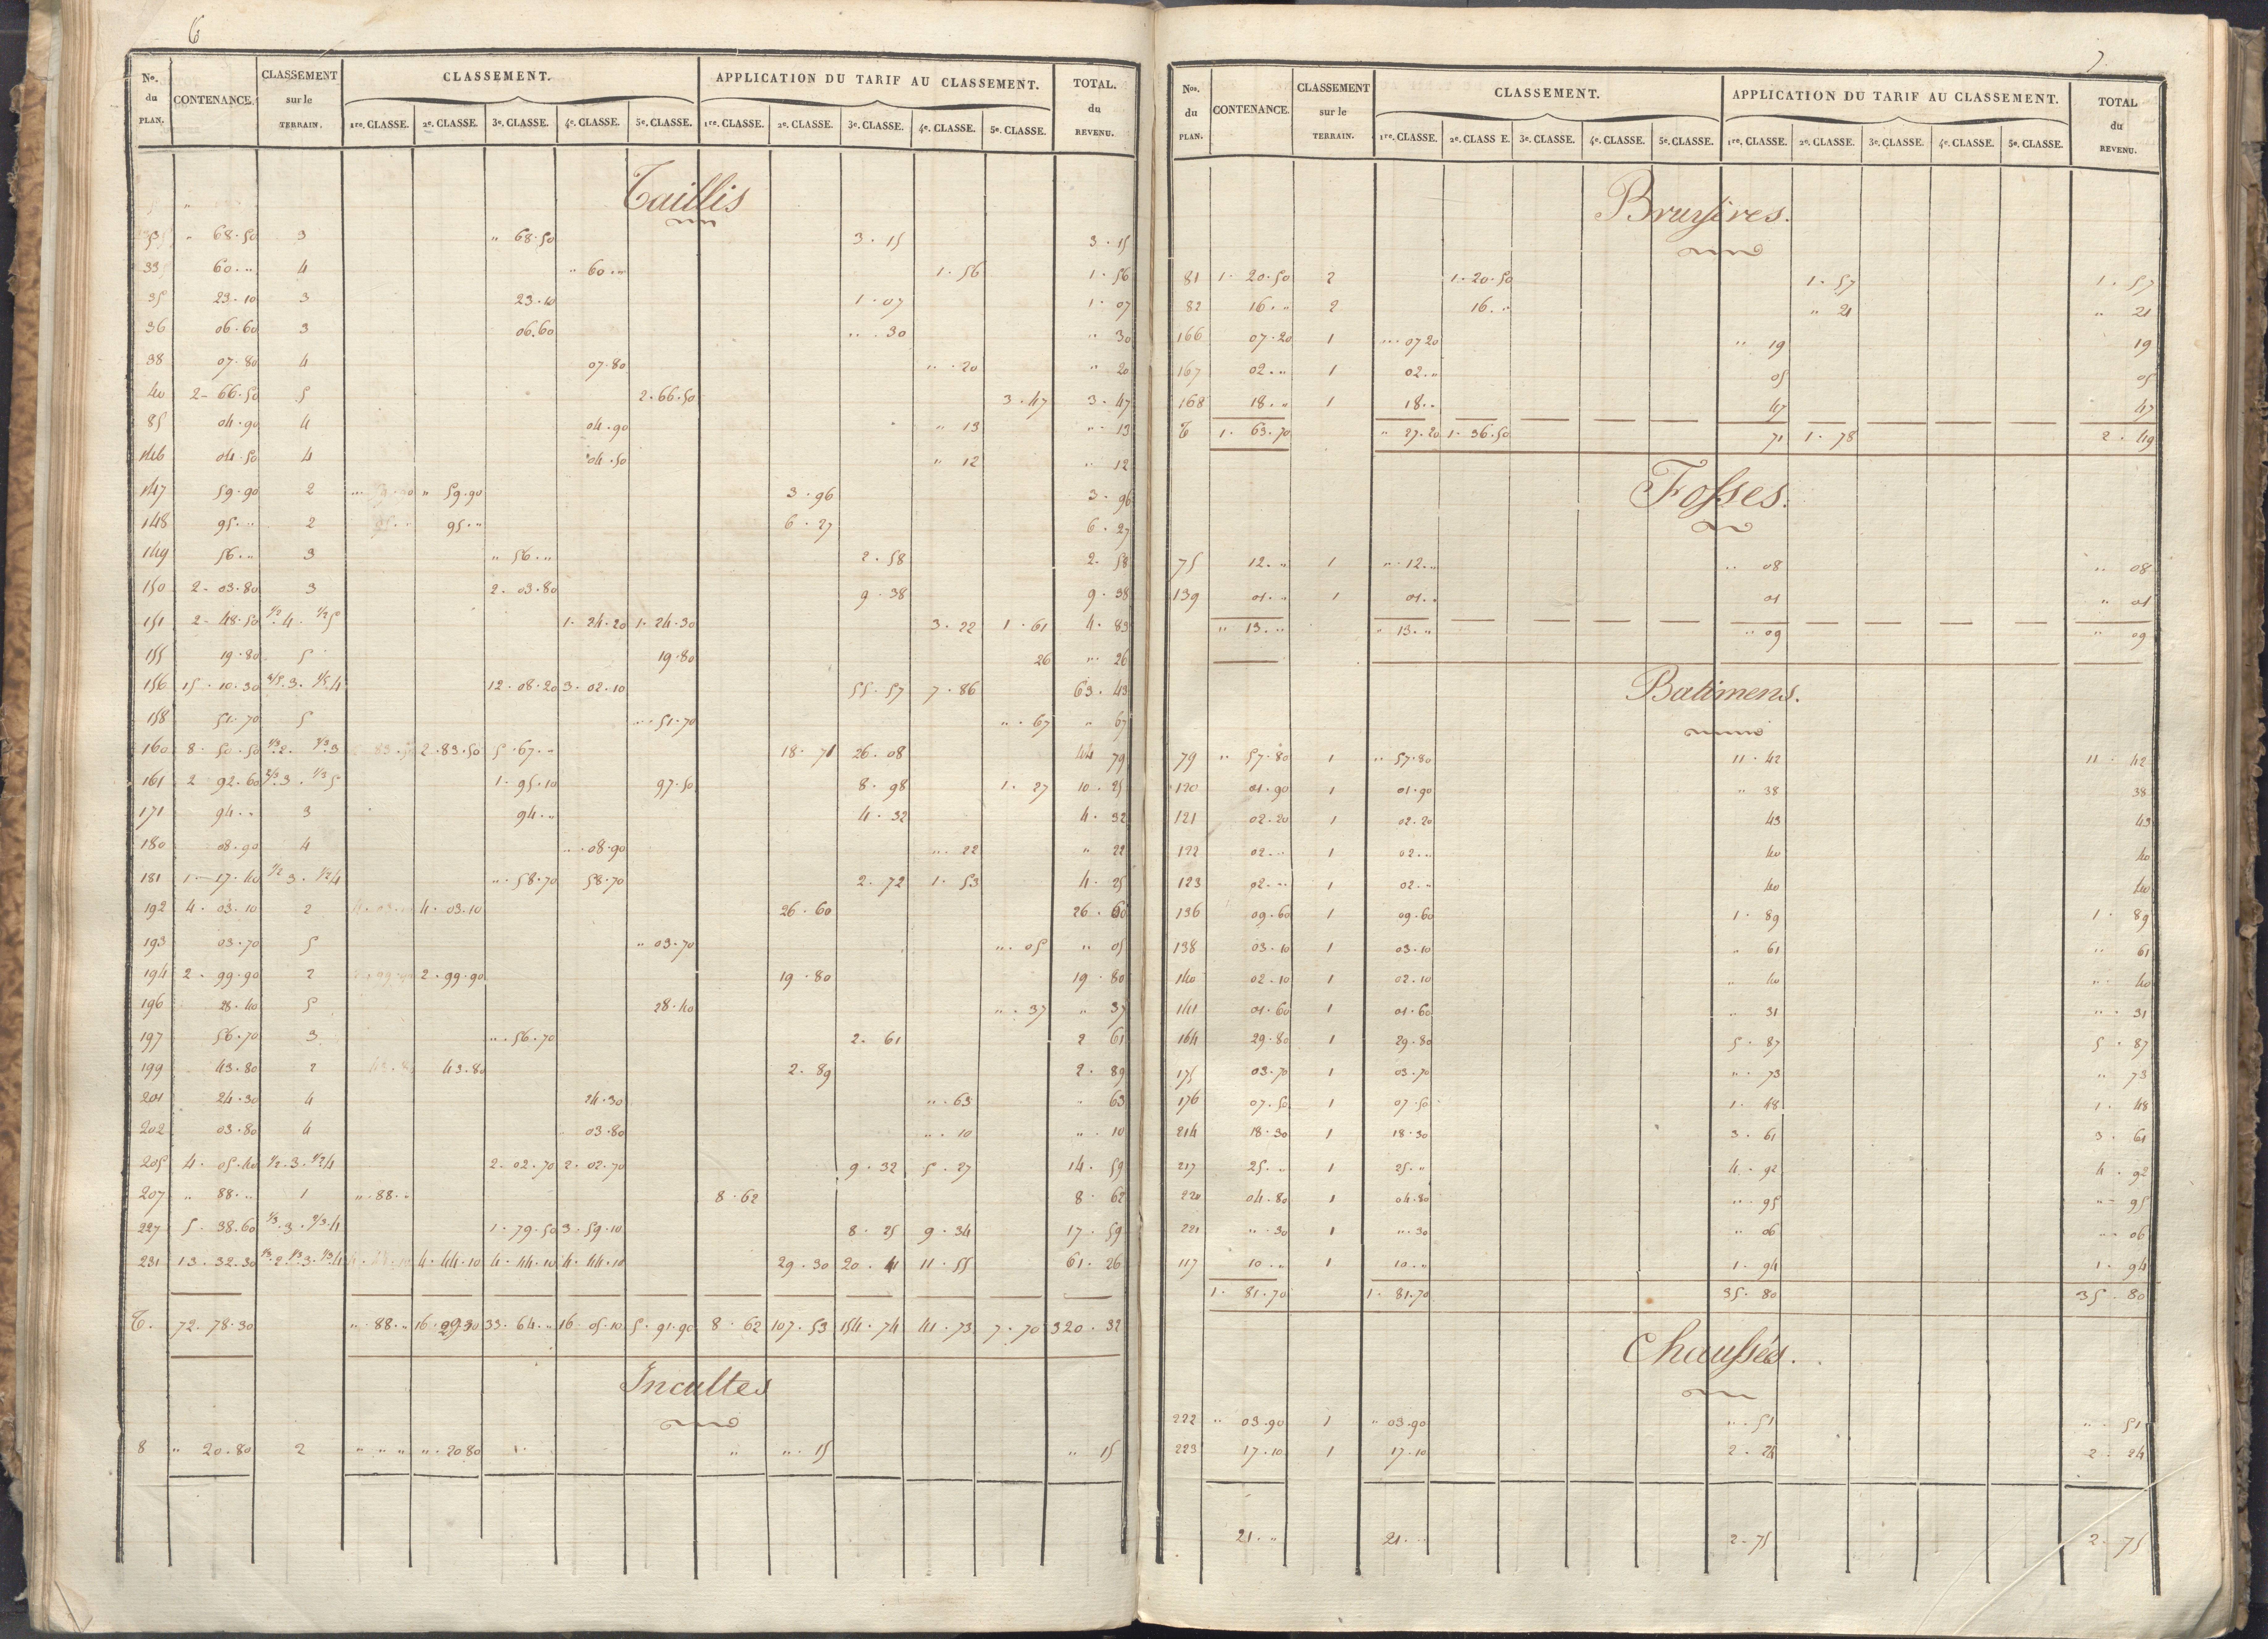 6
No. du PLAN. CONTENANCE. CLASSEMENT sur le TERRAIN. CLASSEMENT. APPLICATION DU TARIF AU CLASSEMENT. TOTAL. du REVENU.
1re. CLASSE. 2e. CLASSE. 3e. CLASSE. 4e. CLASSE. 5e. CLASSE. 1re. CLASSE. 2e. CLASSE. 3e. CLASSE. 4e. CLASSE. 5e. CLASSE.
Taillis
" 68.50 3 " 68.50 3.15 3.15
33 60." 4 " 60." 1.56 1.56
35 23.10 3 23.10 1.07 1.07
36 06.60 3 06.60 ".30 " 30
38 07.80 4 07.80 ".20 " 20
40 2.66.50 5 2.66.50 3.47 3.47
85 04.90 4 04.90 " 13 ".13
146 04.50 4 04.50 " 12 " 12
147 59.90 2 " 59.90 3.96 3.96
148 95." 2 95." 6.27 6.27
149 56." 3 " 56." 2.58 2.58
150 2.03.80 3 2.03.80 9.38 9.38
151 2.48.50 1/2.4. 1/2 5 1.24.20 1.24.30 3.22 1.61 4.83
155 19.80 5 19.80 26 " 26
156 15.10.30 4/5.3. 1/5.4 12.08.20 3.02.10 55.57 7.86 63.43
158 51.70 5 " 51.70 ".67 " 67
160 8.50.50 1/3.2. 2/3.3 2.83.50 5.67." 18.71 26.08 44 79
161 2.92.60 2/3.3. 1/3 5 1.95.10 97.50 8.98 1.27 10.25
171 94." 3 94." 4.32 4.32
180 08.90 4 ".08.90 ".22 " 22
181 1.17.40 1/2 3. 1/2 4 ".58.70 58.70 2.72 1.53 4.25
192 4.03.10 2 4.03.10 26.60 26.60
193 03.70 5 " 03.70 ".05 " 05
194 2.99.90 2 2.99.90 19.80 19.80
196 28.40 5 28.40 ".37 " 37
197 56.70 3 ".56.70 2.61 2 61
199 43.80 2 43.80 2.89 2.89
201 24.30 4 24.30 ".63 " 63
202 03.80 4 03.80 ".10 ".10
205 4.05.40 1/2.3. 1/2 4 2.02.70 2.02.70 9.32 5.27 14.59
207 " 88." 1 ".88." 8.62 8.62
227 5.38.60 1/3.3. 2/3.4 1.79.50 3.59.10 8.25 9.34 17.59
231 13.32.30 1/3.2. 1/3.3. 1/3.4 4.44.10 4.44.10 4.44.10 29.30 20.41 11.55 61.26
T. 72.78.30 ".88." 16.29.30 33.64." 16.05.10 5.91.90 8.62 107.53 154.74 41.73 7.70 320.32
Incultes
8 " 20.80 2 " " " ".20 80 " ".15 " 15
7
Nos. du PLAN. CONTENANCE. CLASSEMENT sur le TERRAIN. CLASSEMENT. APPLICATION DU TARIF AU CLASSEMENT. TOTAL du REVENU.
1re. CLASSE. 2e. CLASS E. 3e. CLASSE. 4e. CLASSE. 5e. CLASSE. 1re. CLASSE. 2e. CLASSE. 3e. CLASSE. 4e. CLASSE. 5e. CLASSE.
Bruyères.
81 1.20.50 2 1.20.50 1.57 1.57
82 16." 2 16." " 21 " 21
166 07.20 1 ".07 20 " 19 19
167 02." 1 02." 05 05
168 18." 1 18." 47 47
T 1.63.70 " 27.20 1.36.50 71 1.78 2.49
Fosses.
75 12." 1 ".12." " 08 " 08
139 01." 1 01." 01 " 01
" 13." " 13." " 09 " 09
Batimens.
79 " 57.80 1 " 57.80 11.42 11.42
120 01.90 1 01.90 " 38 38
121 02.20 1 02.20 43 43
122 02." 1 02." 40 40
123 02." 1 02." 40 40
136 09.60 1 09.60 1.89 1.89
138 03.10 1 03.10 " 61 " 61
140 02.10 1 02.10 " 40 " 40
141 01.60 1 01.60 " 31 ".31
164 29.80 1 29.80 5.87 5.87
175 03.70 1 03.70 ".73 " 73
176 07.50 1 07.50 1.48 1.48
214 18.30 1 18.30 3.61 3.61
217 25." 1 25." 4.92 4.92
220 04.80 1 04.80 ".95 ".95
221 ".30 1 ".30 " 06 ".06
117 10." 1 10." 1.94 1.94
1.81.70 1.81.70 35.80 35.80
Chaussées.
222 " 03.90 1 " 03.90 ".51 ".51
223 17.10 1 17.10 2.24 2.24
21." 21." 2.75 2.75